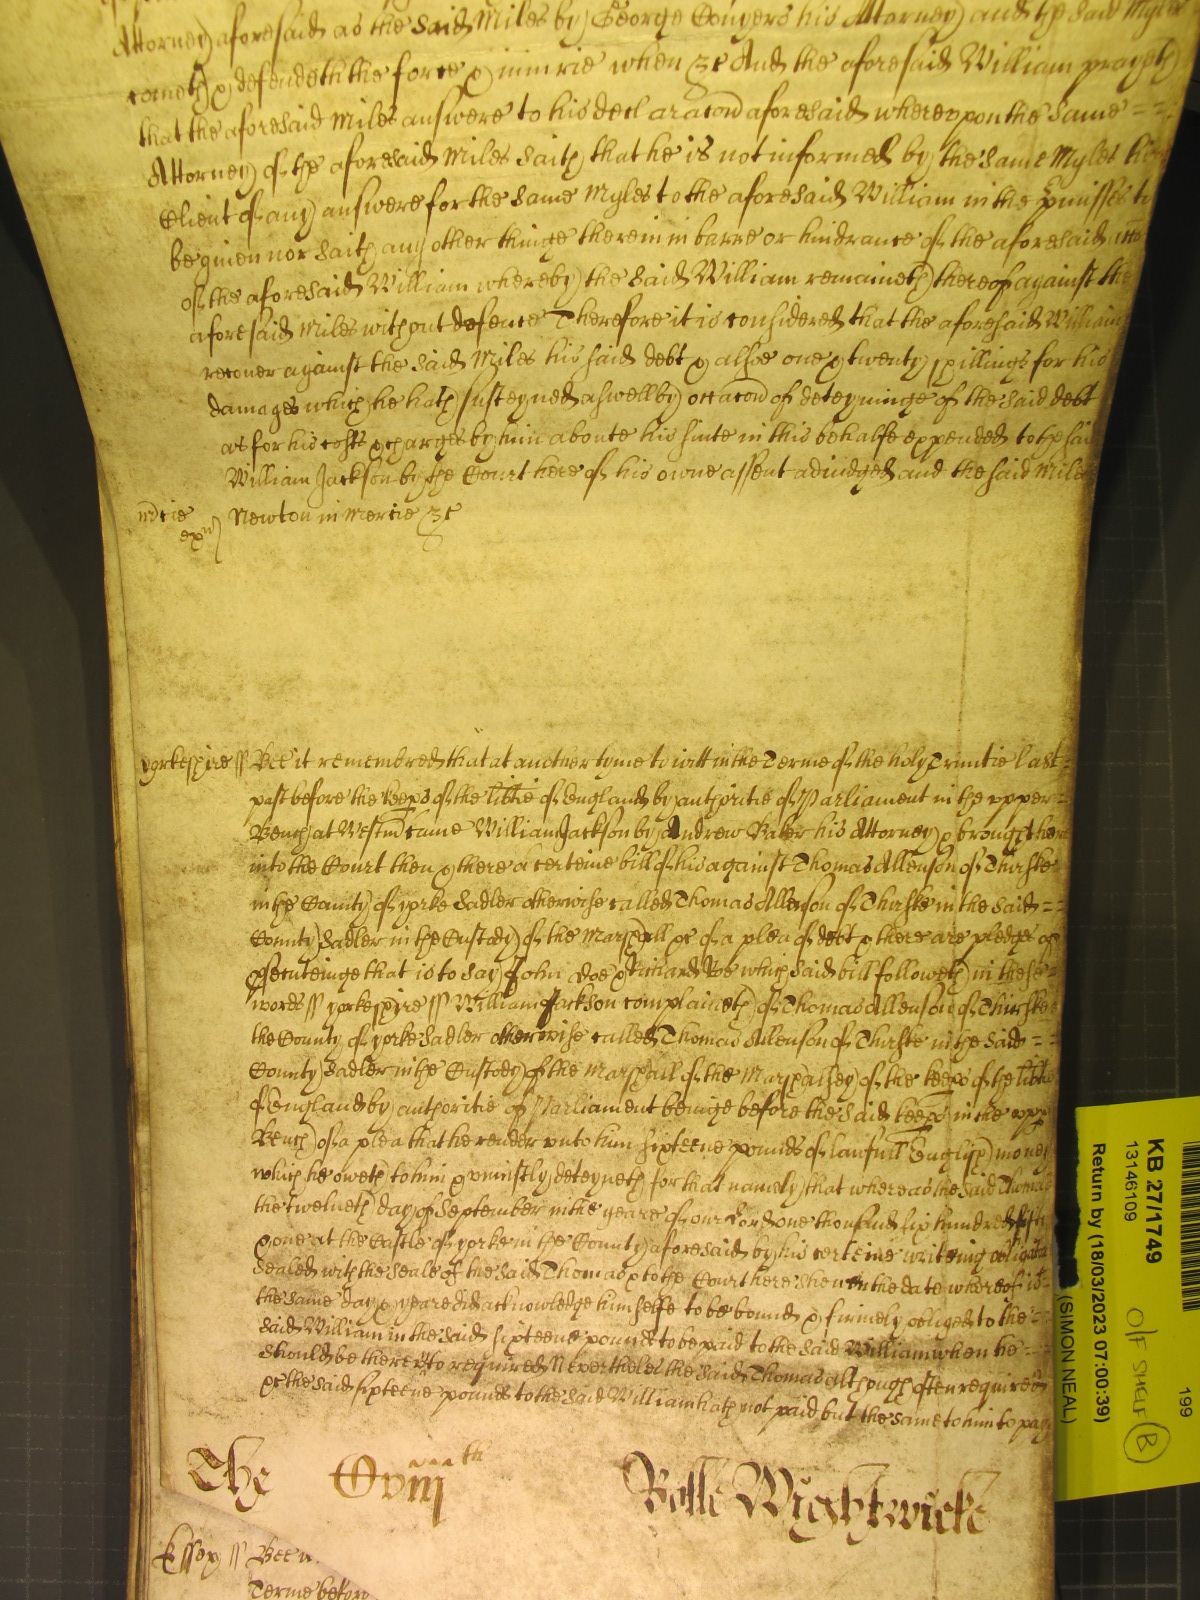 Attorney aforesaid as the said Miles by George Conyers his Attorney and the said Myles
cometh & defendeth the force & iniurie when &c And the aforesaid William prayeth
that the aforesaid Miles answere to his declaracon aforesaid wherevpon the same
Attorney of the aforesaid Miles saith that he is not informed by the same Myles his
Client of any answere for the same Myles to the aforesaid William in the p̱misses to
be giuen nor saith any other thinge therein in barre or hindrance of the aforesaid
of the aforesaid William whereby the said William remaineth thereof against the
aforesaid Miles without defence Therefore it is considered that the aforesaid William
recouer against the said Miles his said debt & alsoe one & twenty shillings for his
damages which he hath susteyned aswell by occacon of deteyninge of the said debt
as for his costs & charges by him aboute his suite in this behalfe expended to the said
William Jackson by the Court here of his owne assent adiudged and the said Miles
m̄cie Newton in Mercie &c
exr
yorkeshire // Bee it remembred that at another tyme to witt in the Terme of the holy Trinitie last
past before the keeps of the lib̄tie of England by authoritie of Parliament in the vpper
Bench at Westm̄ came William Jackson by Andrew Baker his Attorney & brought here
into the Court then & there a certeine bill of his against Thomas Allenson of Thirske
in the County of yorke Sadler otherwise called Thomas Allenson of Thirske in the said
County Sadler in the Custody of the Marshall &c of a plea of debt & there are pledges of
p̱secuteinge that is to say John Doe & Richard Roe which said bill followeth in these
words // yorkeshire // William Jackson complaineth of Thomas Allenson of Thirske
the County of yorke Sadler otherwise called Thomas Allenson of Thirske in the said
County Sadler in the Custody of the Marshall of the Marshalsey of the keeps of the lib̄tie
of England by authoritie of Parliament beinge before the said keeps in the vpp
Bench of a plea that he render vnto him sixteene pounds of lawfull English money
which he oweth to him & vniustly deteyneth for that namely that whereas the said Thomas
the twelueth day of September in the yeare of our Lord one thousand six hundred fifty
& one at the Castle of yorke in the County aforesaid by his certeine writeing obligato
sealed with the seale of the said Thomas & to the Court here shewen the date whereof is
the same day & yeare did acknowledge himselfe to be bound & firmely obliged to the
said William in the said sixteene pounds to be paid to the said William when he
should be therevnto required Neuertheles the said Thomas although often required
&c the said sixteene pounds to the said William hath not paid but the same to him to pay
The Cviijth Rolle Wightwicke
Essex // Bee it
Terme before
KB 27/1749
13146109
Return by (18/03/2023 07:00:39)
(SIMON NEAL)
199
O/F SHELF
B